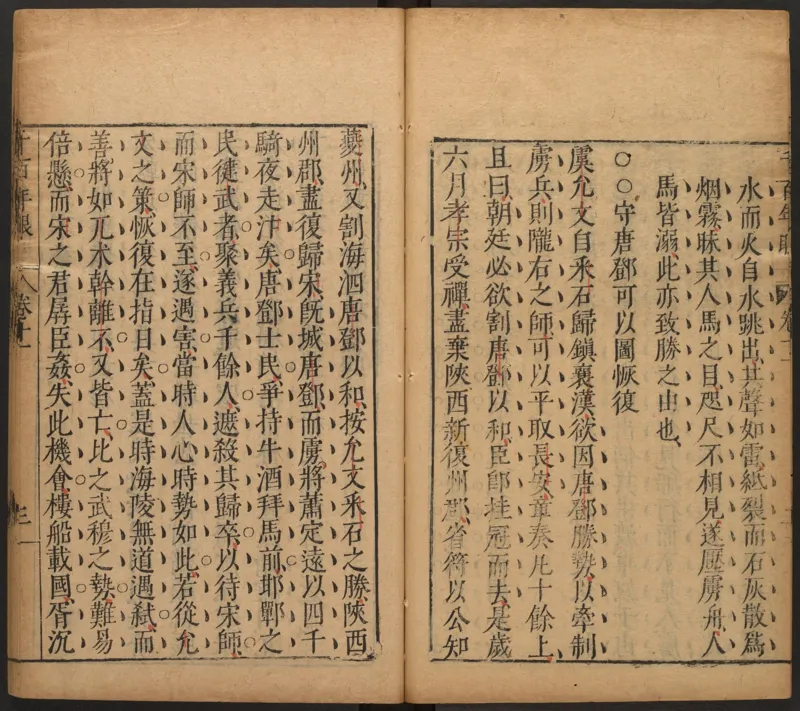 水而火自水跳出其聲如雷紙裂而石灰散為
烟霧眯其人馬之目咫尺不相見遂壓虜舟人
馬皆溺此亦致勝之由也
○○守唐鄧可以圖恢復
虞允文自釆石歸鎮襄漢欲因唐鄧勝勢以牽制
虜兵則隴右之師可以平取長安章奏凡十餘上
且曰朝廷必欲割唐鄧以和臣卽挂冠而去是歲
六月孝宗受禪盡棄陝西新復州郡省符以公知
夔州又割海泗唐鄧以和按允文釆石之勝陝西
州郡盡復歸宋旣城唐鄧而虜將蕭定遠以四千
騎夜走汴矣唐鄧士民爭持牛酒拜馬前邯鄲之
民徤武者聚義兵千餘人遮殺其歸卒以待宋師
而宋師不至遂遇害當時人心時勢如此若從允
文之策恢復在指日矣蓋是時海陵無道遇弒而
善將如兀术幹離不又皆亡比之武穆之勢難易
倍懸而宋之君孱臣姦失此機會樓船載國胥沉
千百年眼 卷十一 三